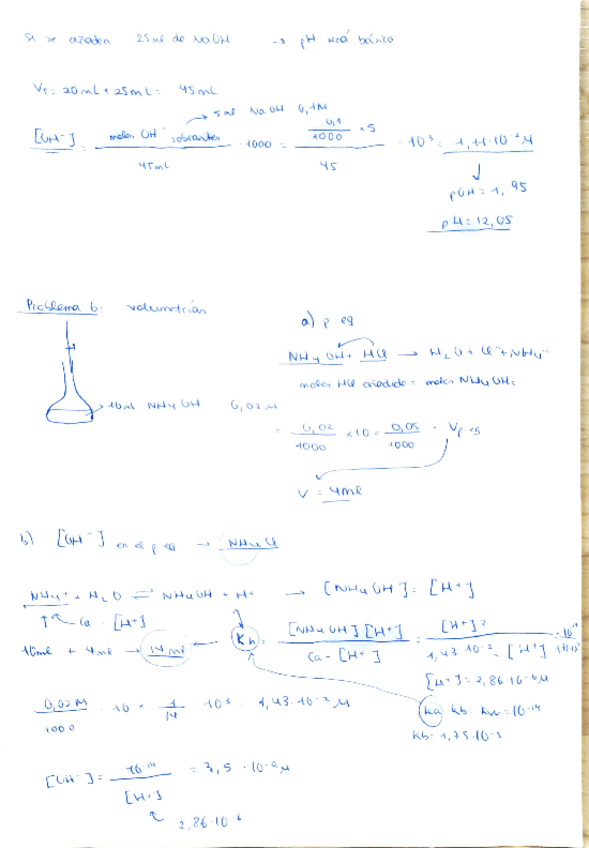 Si se añaden 25ml de NaOH → pH será básico
V_T = 20mL + 25mL = 45mL
→ 5ml NaOH 0,1M
[OH⁻] = moles OH⁻ sobrantes / 45ml · 1000 = (0,1/1000 × 5) / 45 · 10³ = 1,11·10⁻² M
↓
pOH = 1,95
pH = 12,05
Problema 6. volumetrías
a) p eq
NH4OH + HCl → H2O + Cl⁻ + NH4⁺
moles HCl añadido = moles NH4OH =
10ml NH4OH 0,02M
= 0,02/1000 × 10 = 0,05/1000 · Vp eq
V = 4ml
b) [OH⁻] en el p eq → NH4Cl
NH4⁺ + H2O ⇌ NH4OH + H⁺ → [NH4OH] = [H⁺]
Ca - [H⁺]
10ml + 4ml → 14ml ← Kh = [NH4OH][H⁺] / Ca - [H⁺] = [H⁺]² / 1,43·10⁻² - [H⁺]
[H⁺] = 2,86·10⁻⁶M
0,02M/1000 · 10 = 1/14 · 10³ = 1,43·10⁻² M
Ka Kb = Kw = 10⁻¹⁴
Kb = 1,75·10⁻⁵
[OH⁻] = 10⁻¹⁴ / [H⁺] = 3,5·10⁻⁹M
2,86·10⁻⁶